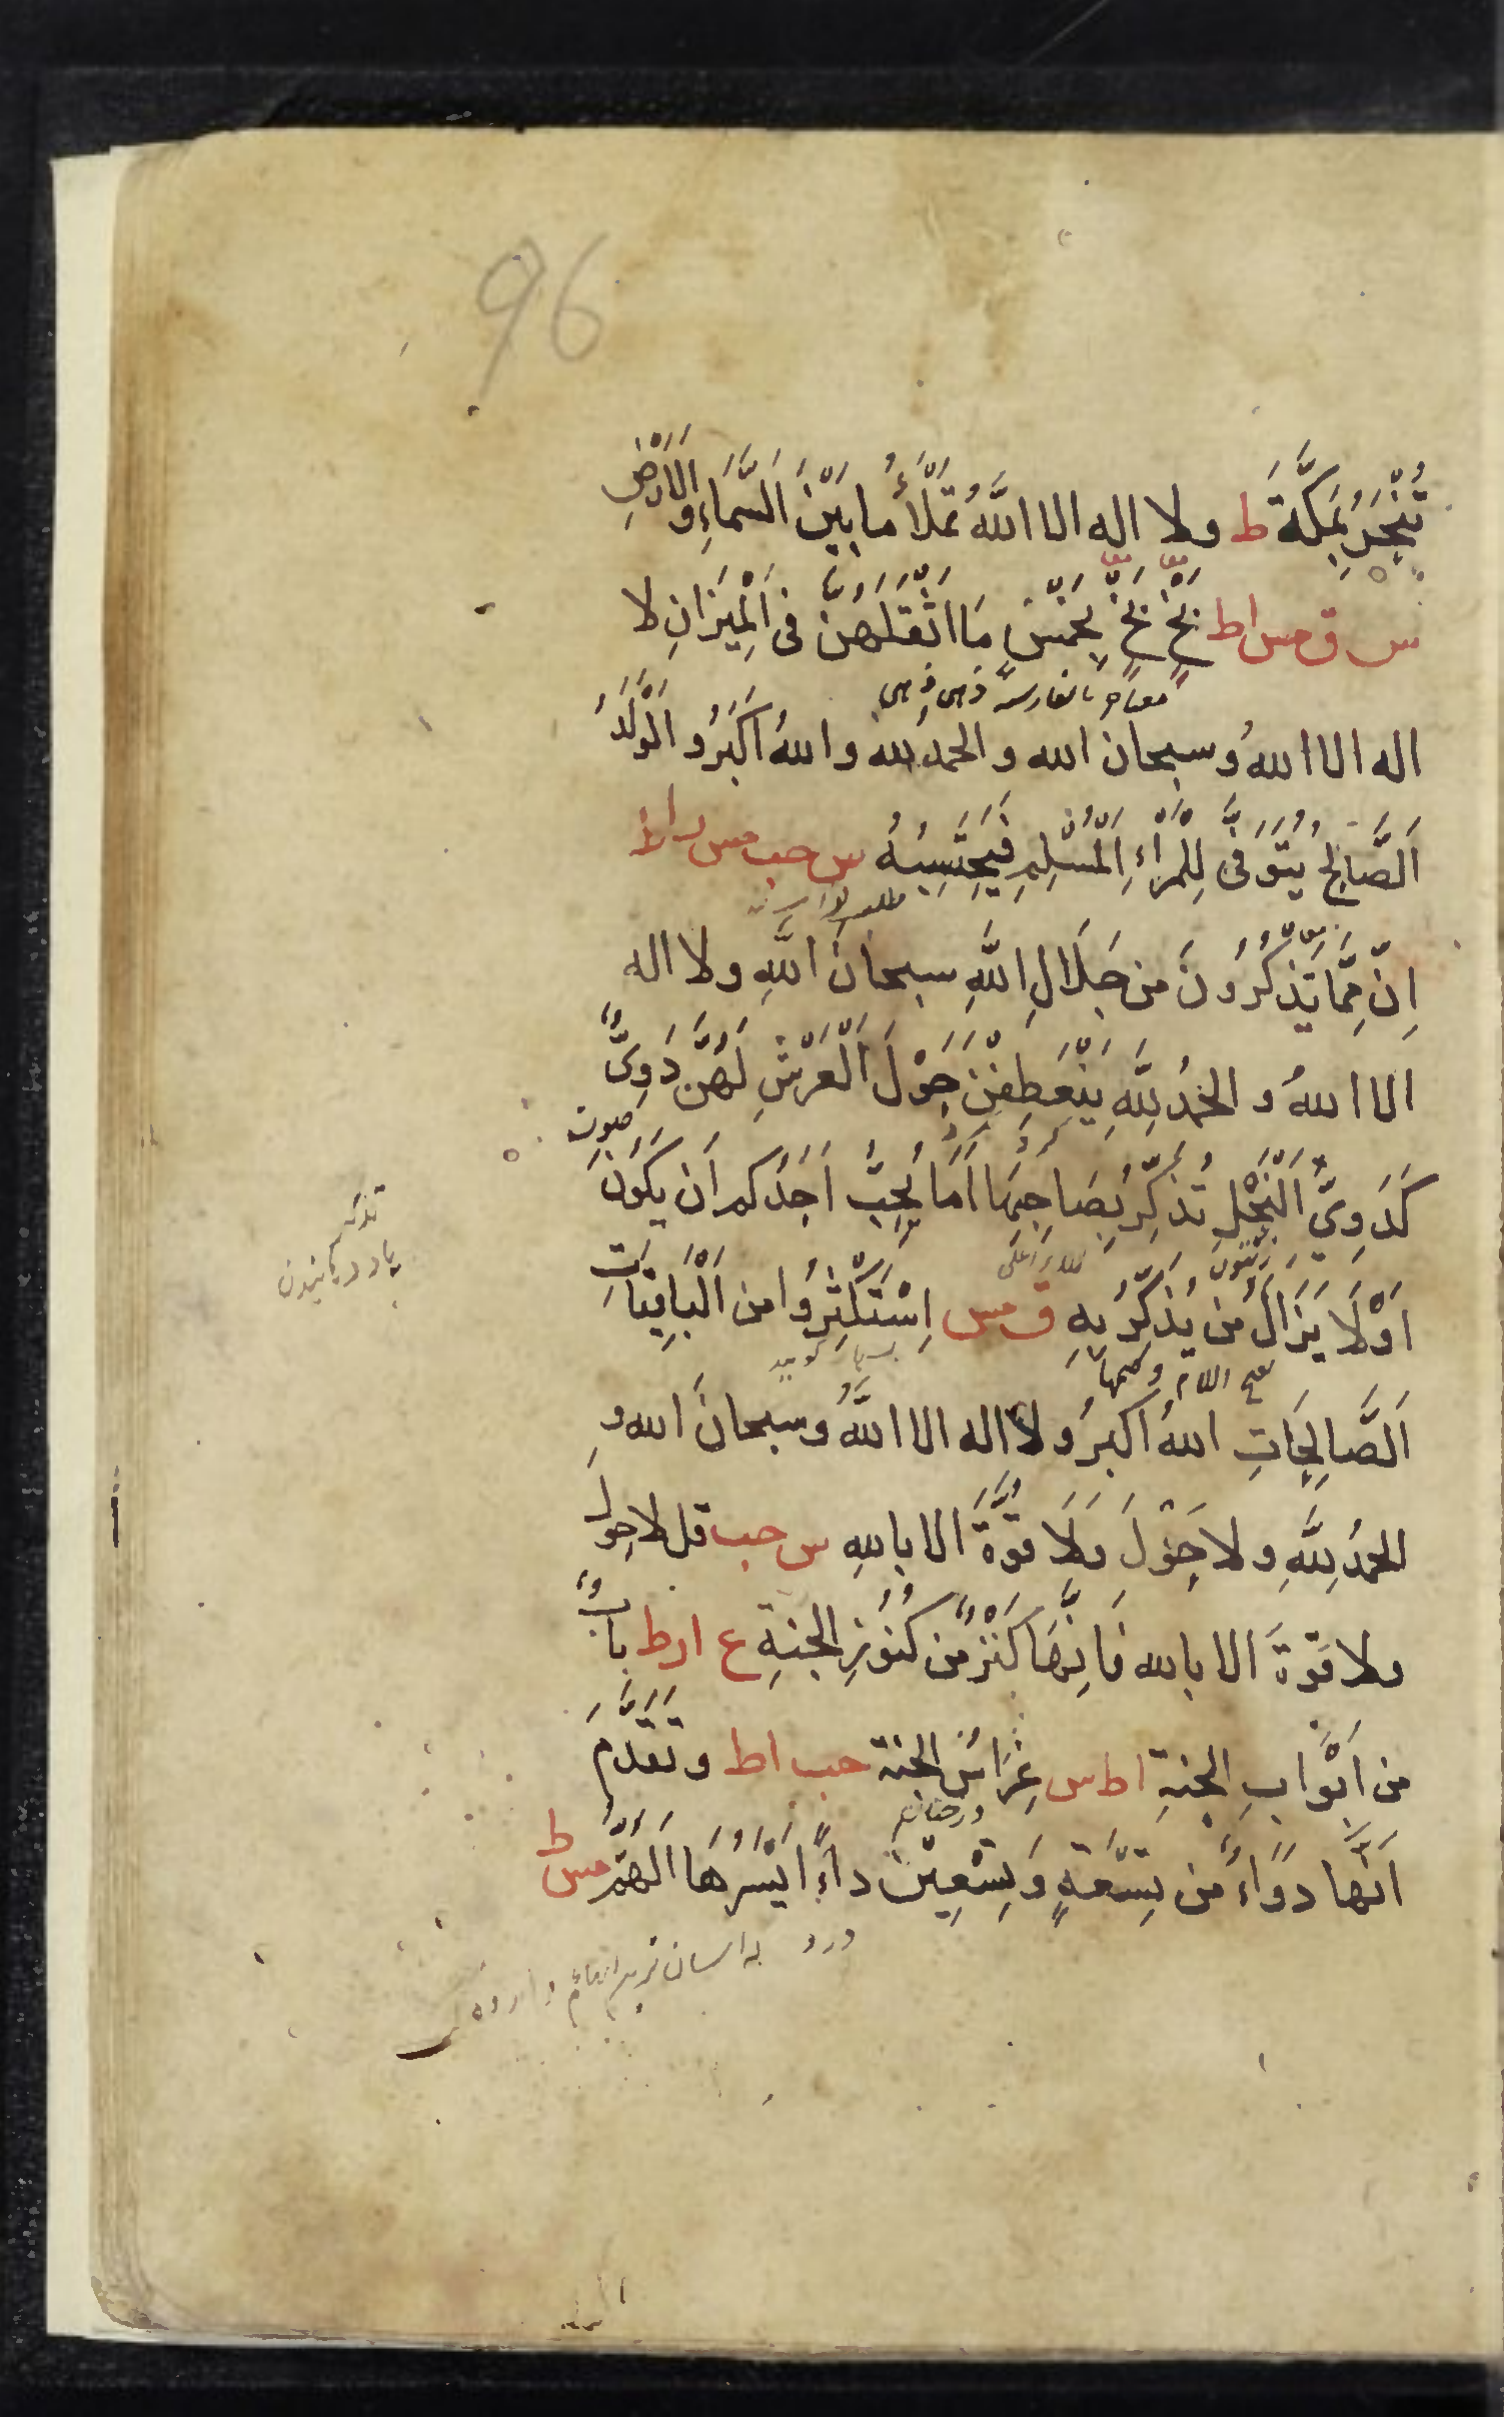 96
تُنْحَرُ بِمَكَّةَ ط ولا اله الا اللَّهُ تَمْلَأُ مَا بَيْنَ السَّمَاءِ وَالْاَرْضِ
س ق مس ا ط بَخٍّ بَخٍّ بِخَمْسٍ مَا اَثْقَلَهُنَّ فى الْمِيْزَانِ لا
اله الا اللهُ وسبحان الله والحمد لله والله اَكْبَرُ وَالْوَلَدُ
الصَّالِحُ يُتَوَفّٰى لِلْمَرْءِ الْمُسْلِمِ فَيَحْتَسِبُهُ س حب مس ر ا ط
اِنَّ مِمَّا تَذْكُرُوْنَ من جَلَالِ اللَّهِ سبحانَ اللَّهِ ولا اله
الا اللهُ والحمدُ لِلَّهِ يَنْعَطِفْنَ حَوْلَ الْعَرْشِ لَهُنَّ دَوِىٌّ
صوت
كَدَوِىِّ النَّحْلِ تُذَكِّرُ بِصَاحِبِهَا اَمَا يُحِبُّ اَحَدُكم اَن يَكُوْنَ
تذكير
ياد دهانيدن
اَوْ لَا يَزَالُ من يُذَكِّرُ بِهِ ق مس اِسْتَكْثِرُوْا من الْبَاقِيَاتِ
الصَّالِحَاتِ اللهُ اكبرُ ولا اله الا اللَّهُ وسبحانَ الله و
الحمدُ لِلَّهِ ولا حَوْلَ وَلَا قُوَّةَ الا باللهِ س حب قل لا حول
ولا قوّةَ الا بالله فَاِنَّهَا كَنْزٌ من كُنُوْزِ الجنةِ ع ا ر ط بابٌ
من اَبْوَابِ الجنةِ ا ط س غِرَاسُ الجنة حب ا ط وتَقَدَّمَ
اَنَّهَا دَوَاءٌ من تِسْعَةٍ وَتِسْعِيْنَ دَاءً اَيْسَرُهَا الْهَمُّ مس ط